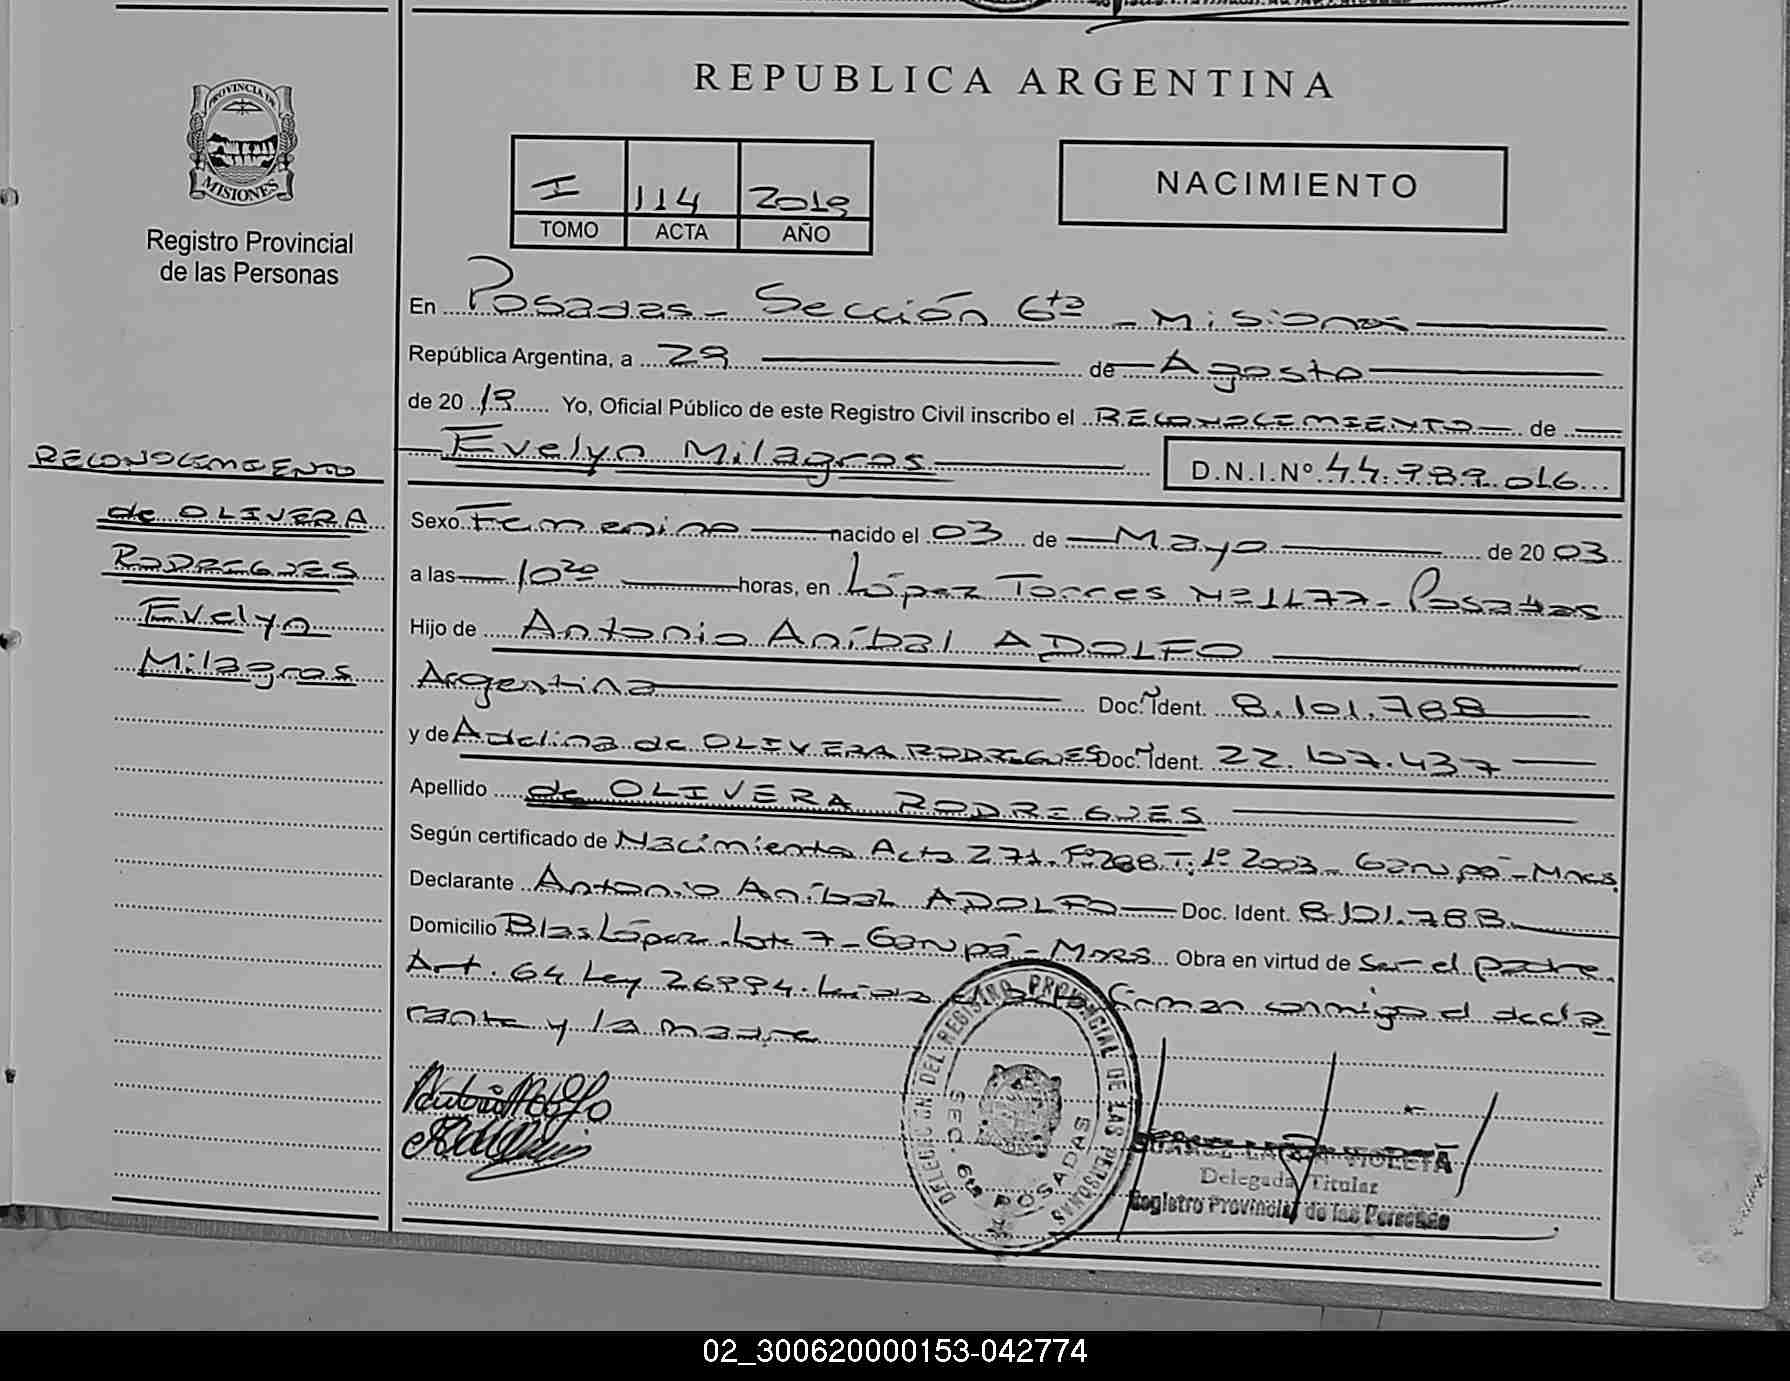 REPUBLICA ARGENTINA
PROVINCIA DE
MISIONES
Registro Provincial
de las Personas
I 114 2019
TOMO ACTA AÑO
NACIMIENTO
En Posadas - Sección 6ta - Misiones
República Argentina, a 29 de Agosto
de 20 19 Yo, Oficial Público de este Registro Civil inscribo el RECONOCIMIENTO de
Evelyn Milagros D.N.I.Nº 44.789.016
RECONOCIMIENTO
de OLIVERA
RODREGUES
Evelyn
Milagros
Sexo Femenino nacido el 03 de Mayo de 20 03
a las 10 20 horas, en López Torres Nº 1177 - Posadas
Hijo de Antonio Aníbal ADOLFO
Argentina Doc. Ident. 8.101.788
y de Adelina de OLIVERA RODREGUES Doc. Ident. 22.107.437
Apellido de OLIVERA RODREGUES
Según certificado de Nacimiento Acta 271. Fº 288 T: 1º 2003 - Garupá - Mnes
Declarante Antonio Aníbal ADOLFO Doc. Ident. 8.101.788
Domicilio Blas López Lote 7 - Garupá - Mnes Obra en virtud de Ser el padre.
Art. 64 Ley 26994. Leída el acta firman conmigo el decla
rante y la madre
DELEGACIÓN DEL REGISTRO PROVINCIAL DE LAS PERSONAS
SEC. 6ta POSADAS
VIOLETA
Delegada Titular
Registro Provincial de las Personas
02_300620000153-042774